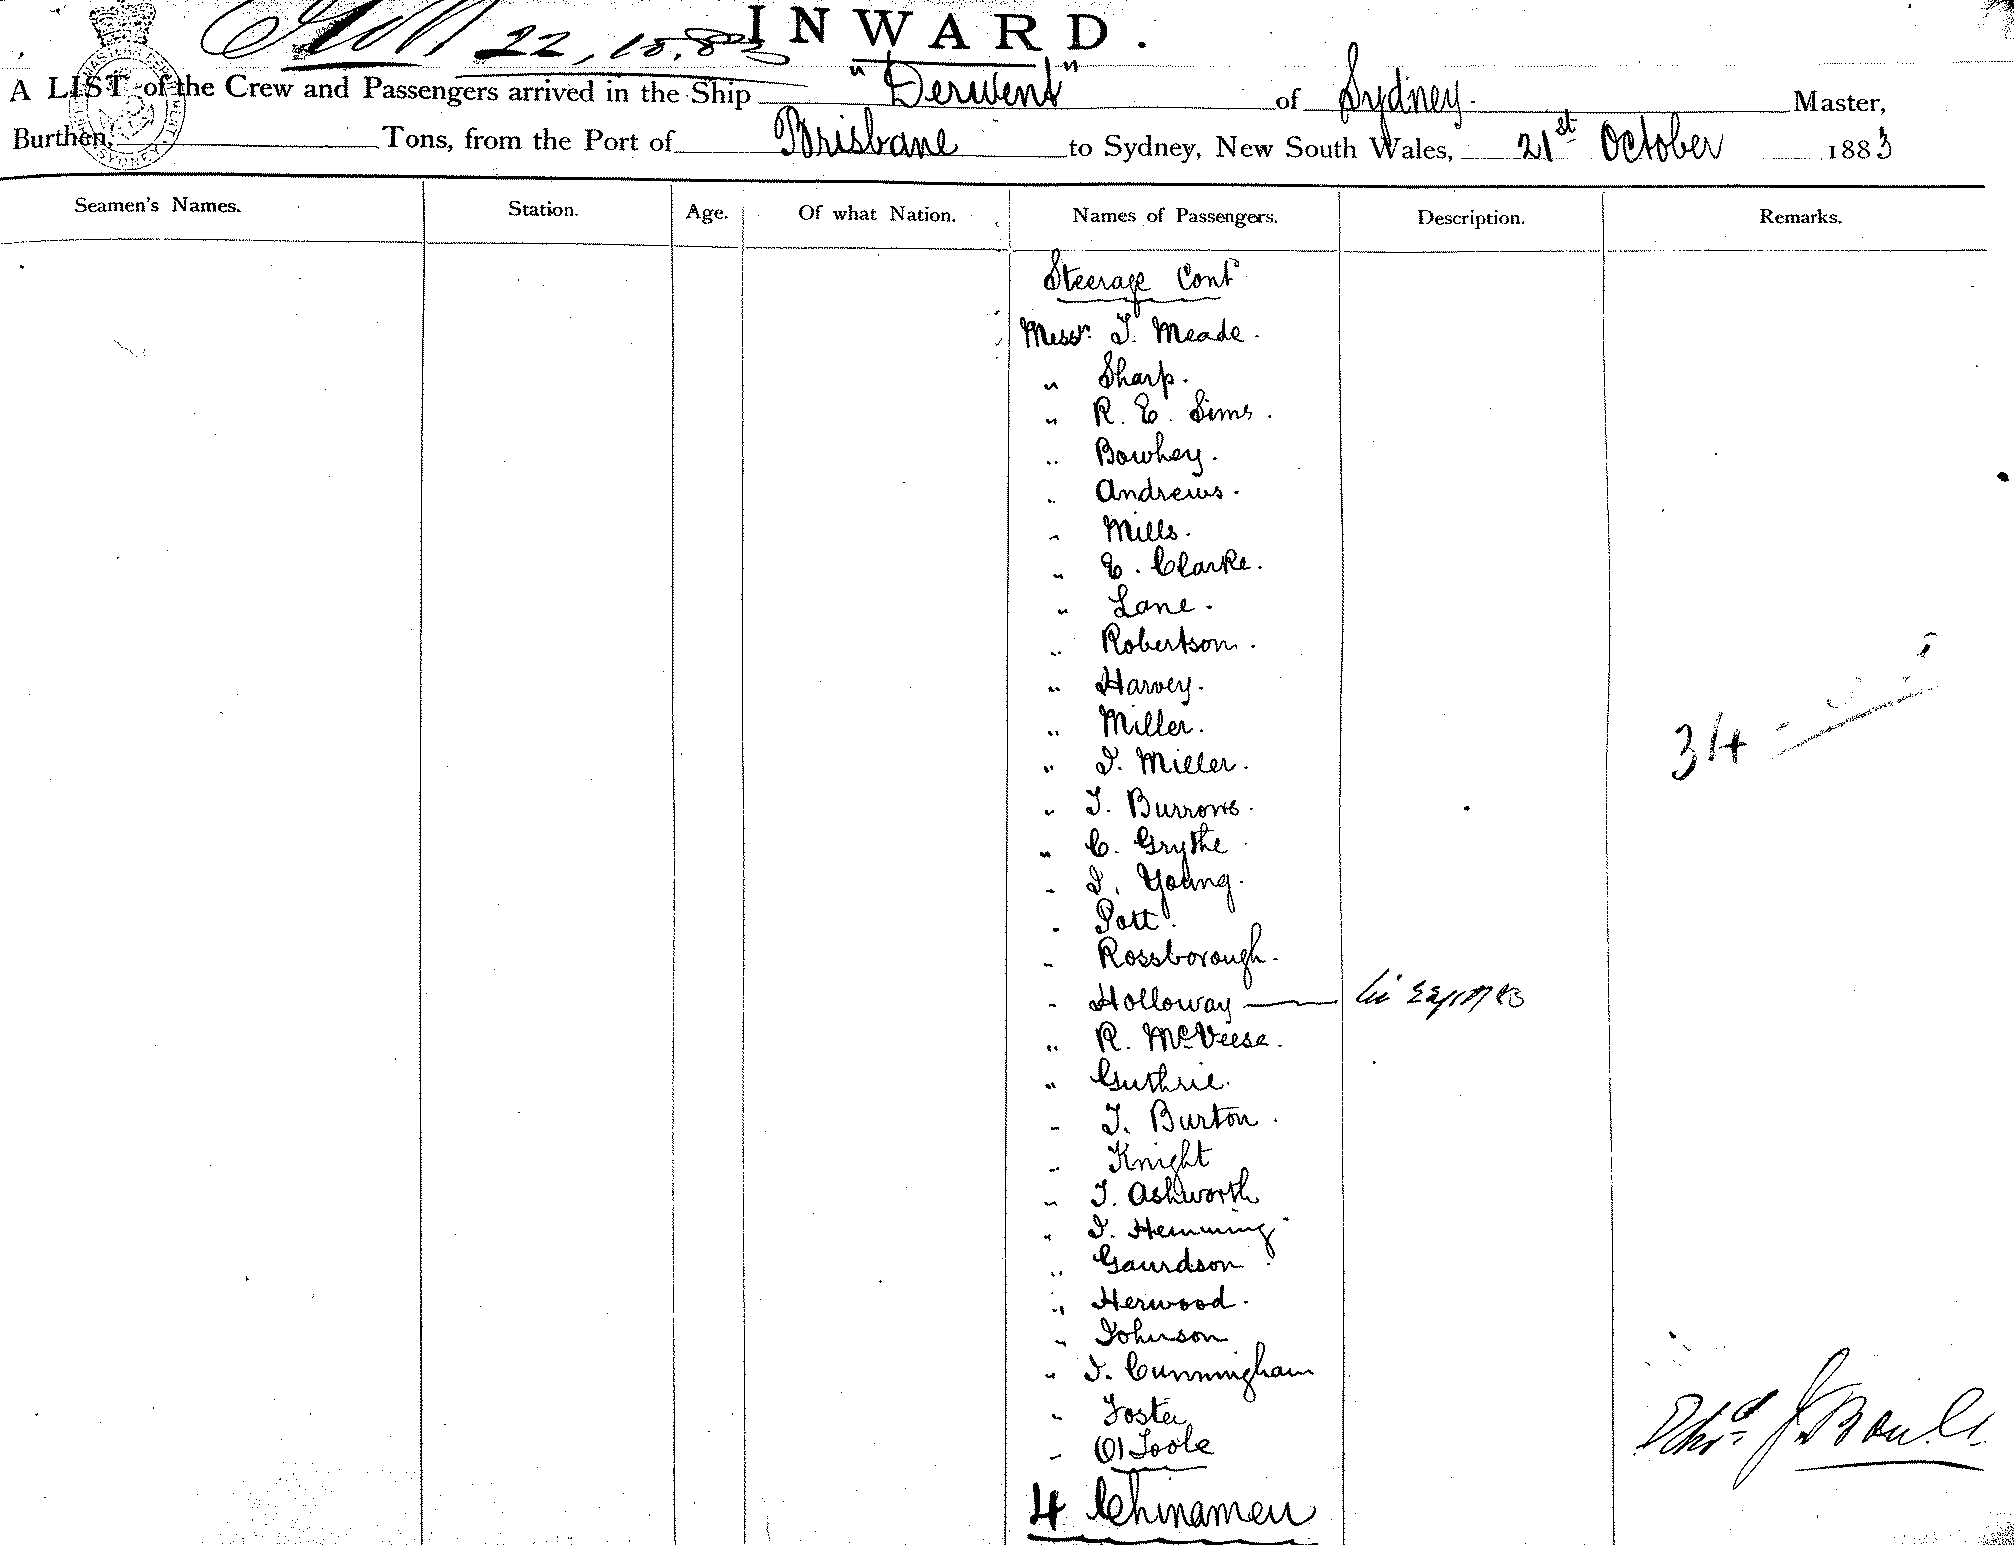 INWARD.
22,10.83
A LIST of the Crew and Passengers arrived in the Ship "Derwent" of Sydney. Master,
Burthen, Tons, from the Port of Brisbane to Sydney, New South Wales, 21st October 1883
Seamen's Names. Station. Age. Of what Nation. Names of Passengers. Description. Remarks.
Steerage Cont
Messr. T. Meade.
" Sharp.
" R. E. Sims.
" Bowhey.
" Andrews.
" Mills.
" E. Clarke.
" Lane.
" Robertson.
" Harvey.
" Miller.
" J. Miller.
" T. Burrows.
" C. Grythe
" J. Young.
" Pott.
" Rossborough.
" Holloway
" R. McVeese.
" Guthrie.
" T. Burton.
" Knight
" T. Ashworth
" J. Hemming
" Gaurdson.
" Herwood.
" Johnson
" J. Cunningham
" Foster
" O'Toole
4 Chinamen
34